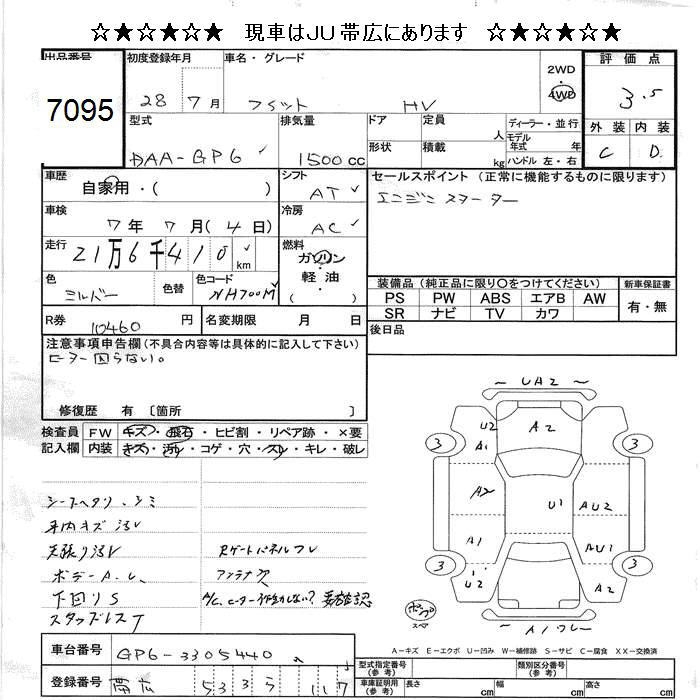 ☆★☆★☆★　現車はJU帯広にあります　☆★☆★☆★
出品番号 初度登録年月 車名・グレード 2WD 評価点
7095 28 7月 フィット HV 4WD 3.5
型式 排気量 ドア 定員 人 ディーラー・並行 外装 内装
DAA-GP6 1500cc 形状 積載 kg モデル年式 年 C D
ハンドル 左・右
車歴 シフト セールスポイント (正常に機能するものに限ります)
自家用・( ) AT エンジンスターター
車検 冷房
7年 7月(4日) AC
走行 燃料
21万6千410km ガソリン
軽油
( )
色 色替 色コード 装備品 (純正品に限り〇をつけてください) 新車保証書
シルバー NH700M PS PW ABS エアB AW 有・無
SR ナビ TV カワ
R券 10460円 名変期限 月 日 後日品
注意事項申告欄(不具合内容等は具体的に記入して下さい)
ヒーター回らない。
修復歴 有 〔箇所 〕
検査員 FW キズ・飛石・ヒビ割・リペア跡・×要
記入欄 内装 キズ・汚れ・コゲ・穴・スレ・キレ・破レ
シートヘタリ、シミ
車内キズ汚レ
天張り汚レ Rゲートパネルサビ
ボデーA.U. アンテナ欠
下回りS A/C、ヒーター作動しない? 要確認
スタッドレスT
～UA2～
U2 A2
A1
3 3
A2 U1 AU2
A1 AU1
3 3
U2 A2
～A1ワレ～
A－キズ E－エクボ U－凹み W－補修跡 S－サビ C－腐食 XX－交換済
車台番号 GP6-3305440
登録番号 帯広 533 117
型式指定番号(参考) 類別区分番号(参考)
車庫証明用(参考) 長さ cm 幅 cm 高さ cm